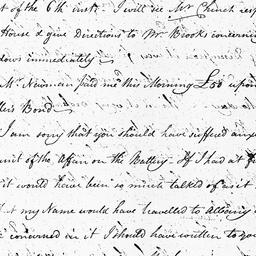 of the 6th inst. I will see Mr Church resp
House & give Directions to Mr Brooks concernin
dows immediately
Mr Newman paid me this Morning £50 upon
Bond
I am sorry that you should have suffered any
unt of the Affair on the Battery. If I had at
it would have been so much talked of as it
that my Name would have travelled to Albany
concerned in it I should have written to you